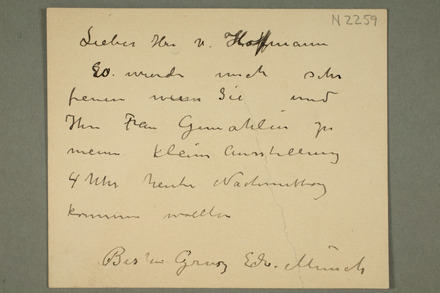 N 2259
Lieber Herr v. Hoffmann
Es wurde mich sehr
freuen wenn Sie und
Ihre Frau Gemahlin zu
meine kleine Ausstellung
4 Uhr heute Nachmittag
kommen wollen
Besten Gruss Edv. Munch